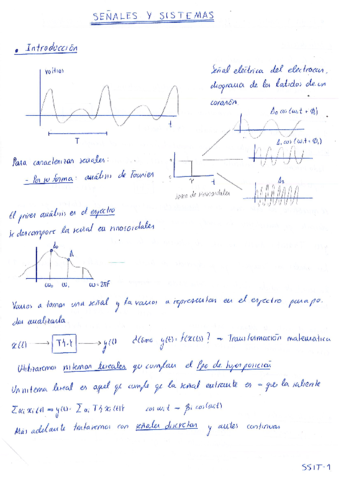 SEÑALES Y SISTEMAS
• Introducción
voltios
t
T
Señal eléctrica del electrocar
diograma de los latidos de un
corazón
Para caracterizar señales:
- Por su forma: análisis de Fourier
t
suma de sinusoidales
El primer análisis es el espectro
Se descompone la señal en sinusoidales
ω=2πF
Vamos a tomar una señal y la vamos a representar en el espectro para po
der analizarla
x(t) → T{·} → y(t) ¿Cómo y(t) = f(x(t))? → Transformación matemática
Utilizaremos sistemas lineales que cumplan el Ppo de superposición
Un sistema lineal es aquel que cumple que la señal entrante es = que la saliente
Más adelante trataremos con señales discretas y antes continuas
SSIT-1